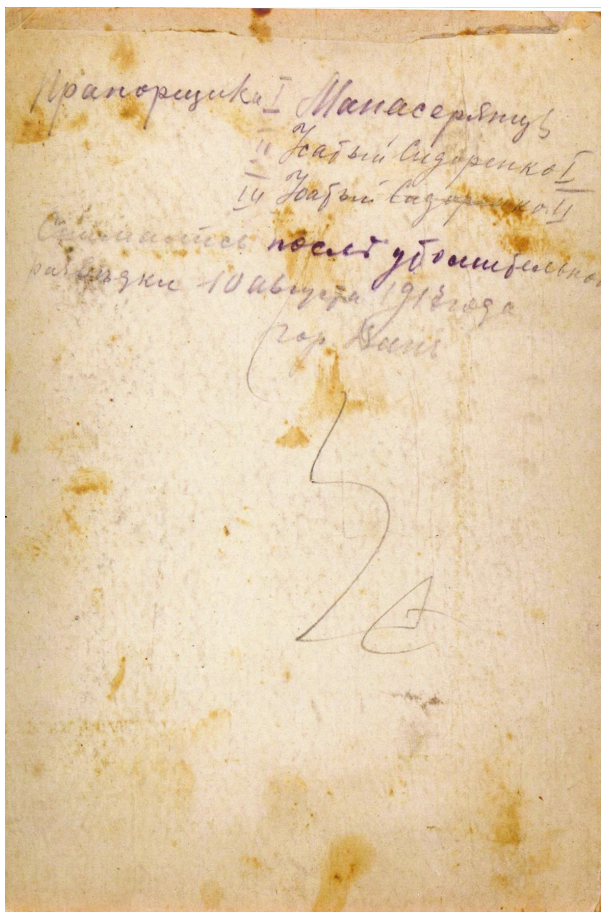 Прапорщика I Манасерянцъ
II Усатый Сидоренко I
III Усатый Сидоренко II
Снимались послѣ утомительной
развѣдки 10 августа года
гор.